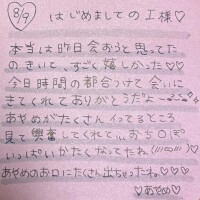 8/9 はじめましての工様♡
本当は昨日会おうと思ってた
のきいて、すごく嬉しかった♡
今日時間の都合つけて会いに
きてくれてありがとうだよ〜
あやめがたくさんイってるところ
見て興奮してくれて…おち〇ぽ
いっぱいかたくなってたね
あやめのお口にたくさん出ちゃったね♡♡♡
♡あやめ♡